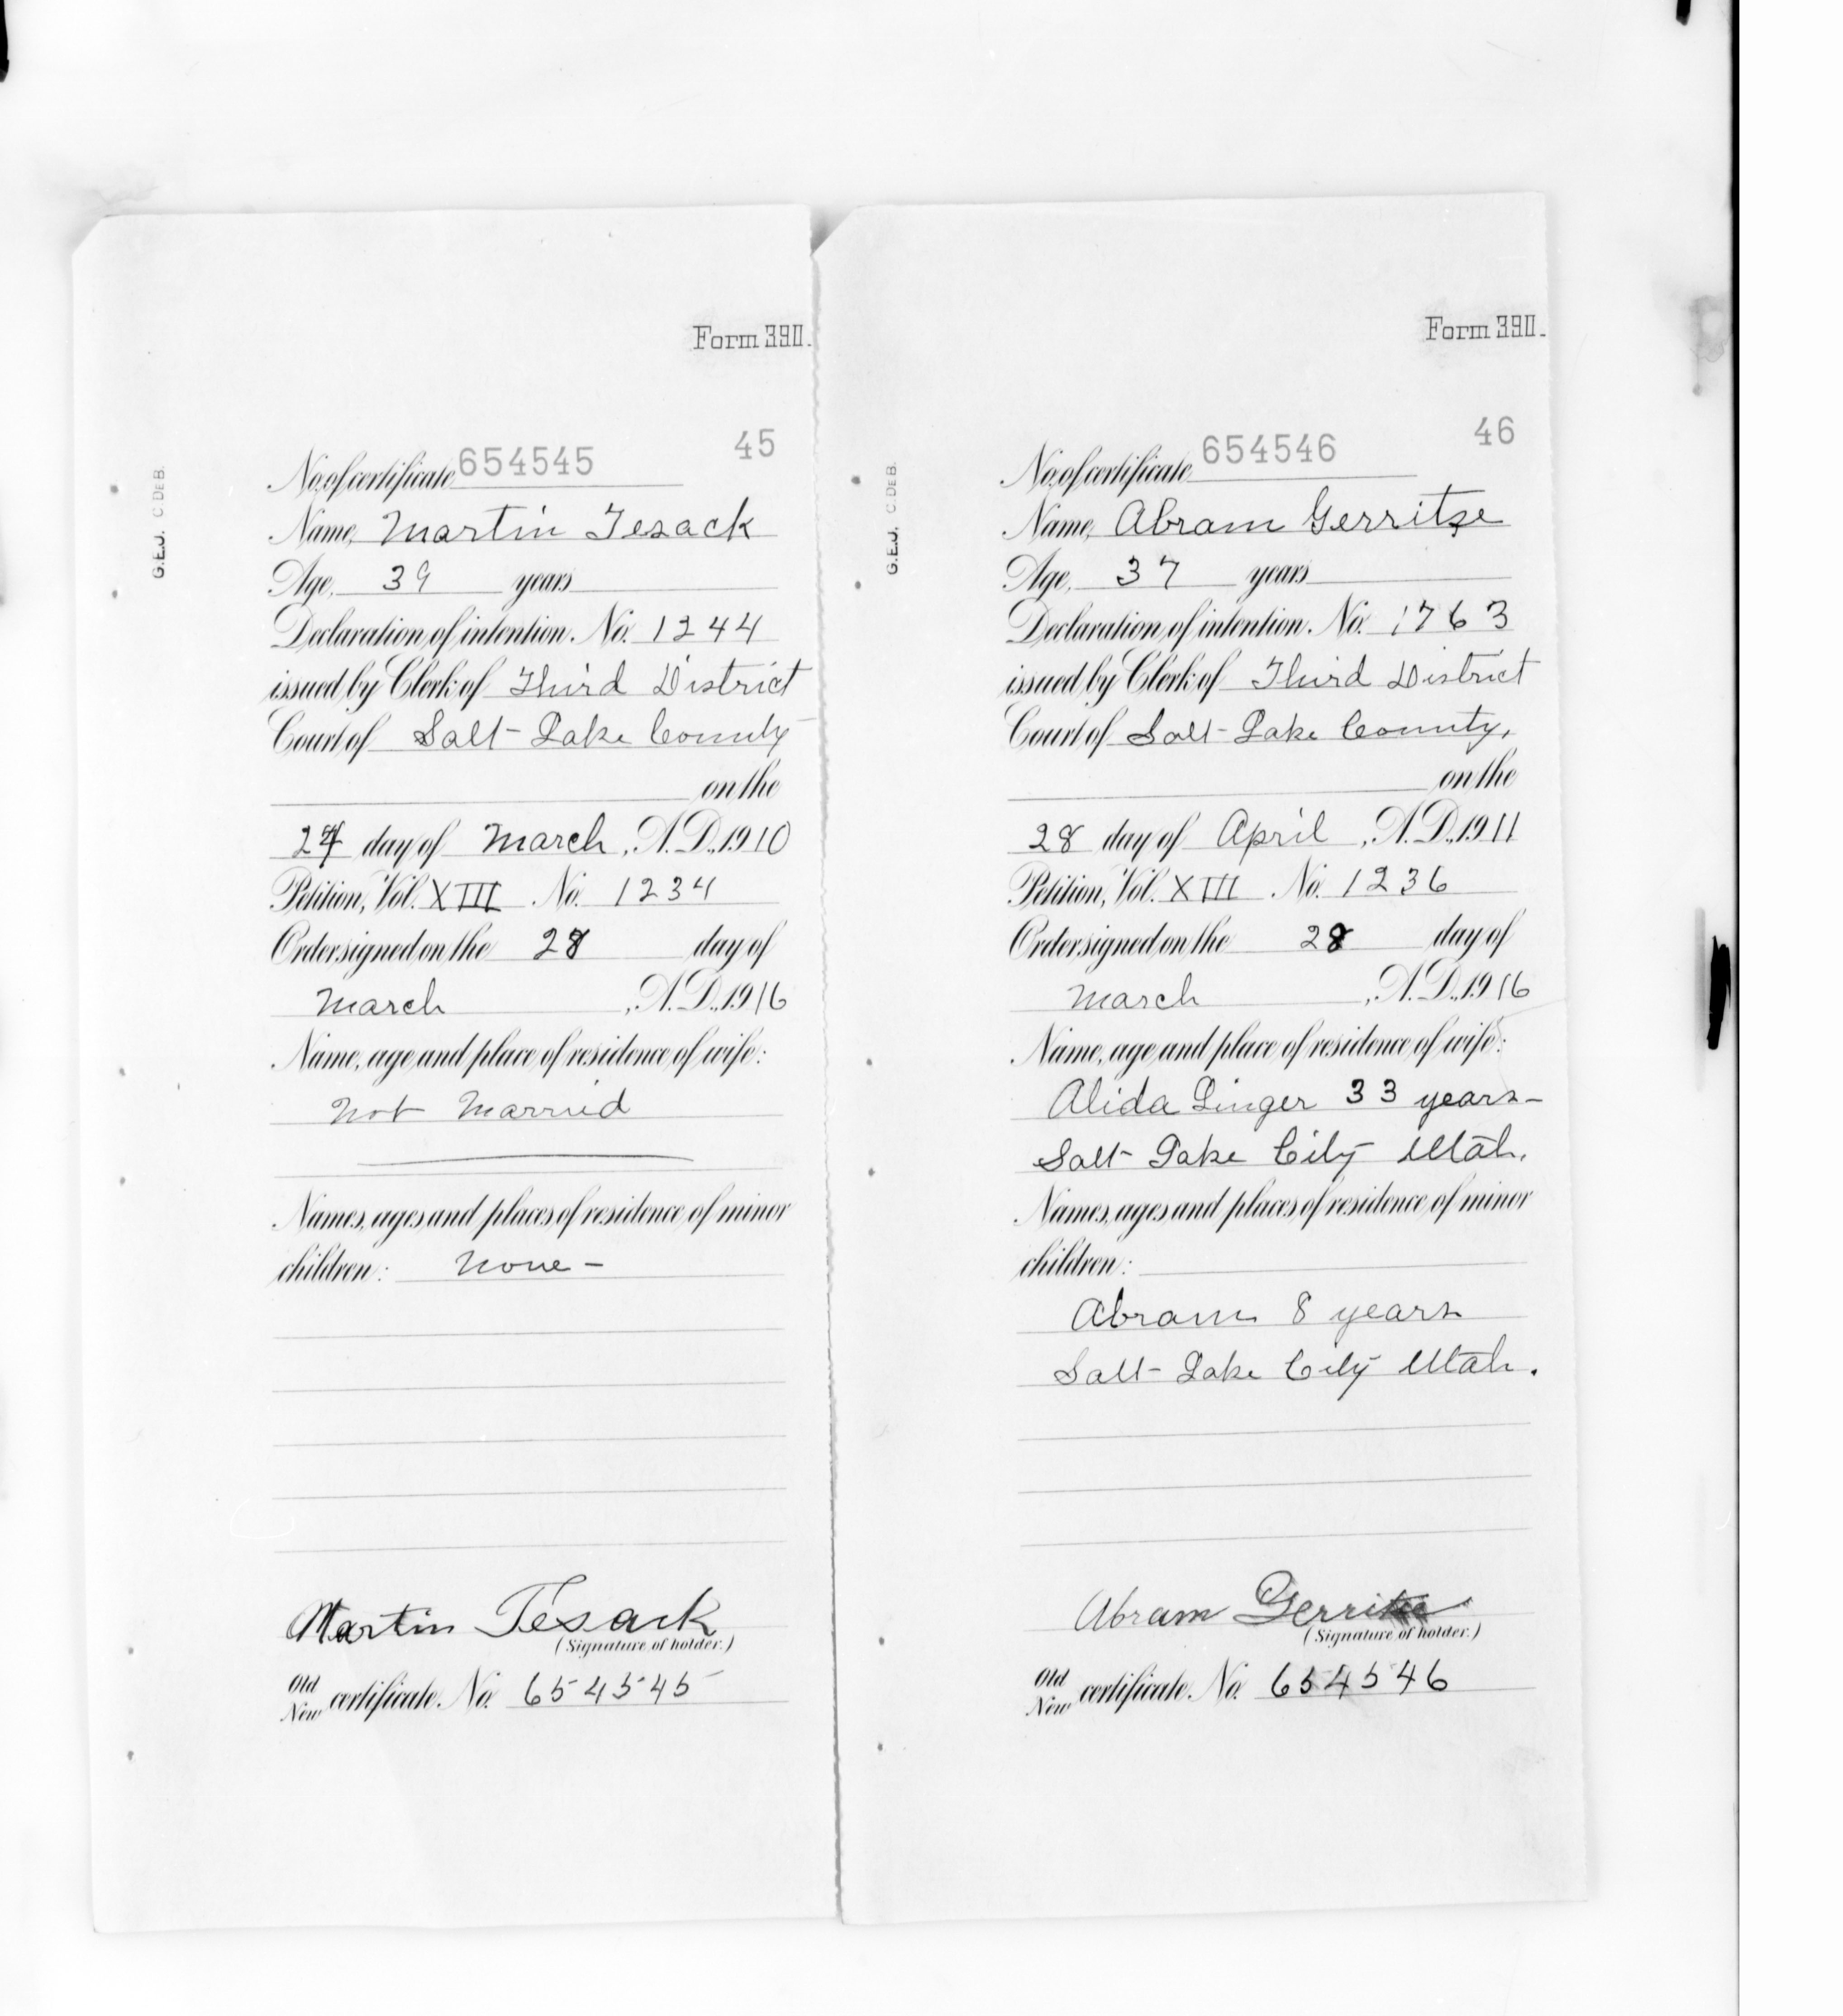 Form 390.
45
No. of certificate 654545
Name, Martin Tesack
Age, 39 years
Declaration of intention. No. 1244
issued by Clerk of Third District
Court of Salt Lake County
on the
day of March, A.D., 1910
Petition, Vol. XIII No. 1234
Order signed on the 28 day of
March, A.D., 1916
Name, age and place of residence of wife:
Not Married
Names, ages and places of residence of minor
children: None -
Martin Tesack
(Signature of holder.)
Old
New certificate. No. 654545
G.E.J. C.DEB.
Form 390.
46
No. of certificate 654546
Name, Abram Gerritse
Age, 37 years
Declaration of intention. No. 1763
issued by Clerk of Third District
Court of Salt Lake County,
on the
28 day of April, A.D., 1911
Petition, Vol. XIII No. 1236
Order signed on the 28 day of
March, A.D., 1916
Name, age and place of residence of wife:
Alida Linger 33 years -
Salt Lake City Utah.
Names, ages and places of residence of minor
children:
Abram 8 years
Salt Lake City Utah.
Abram Gerritse
(Signature of holder.)
Old
New certificate. No. 654546
G.E.J. C.DEB.